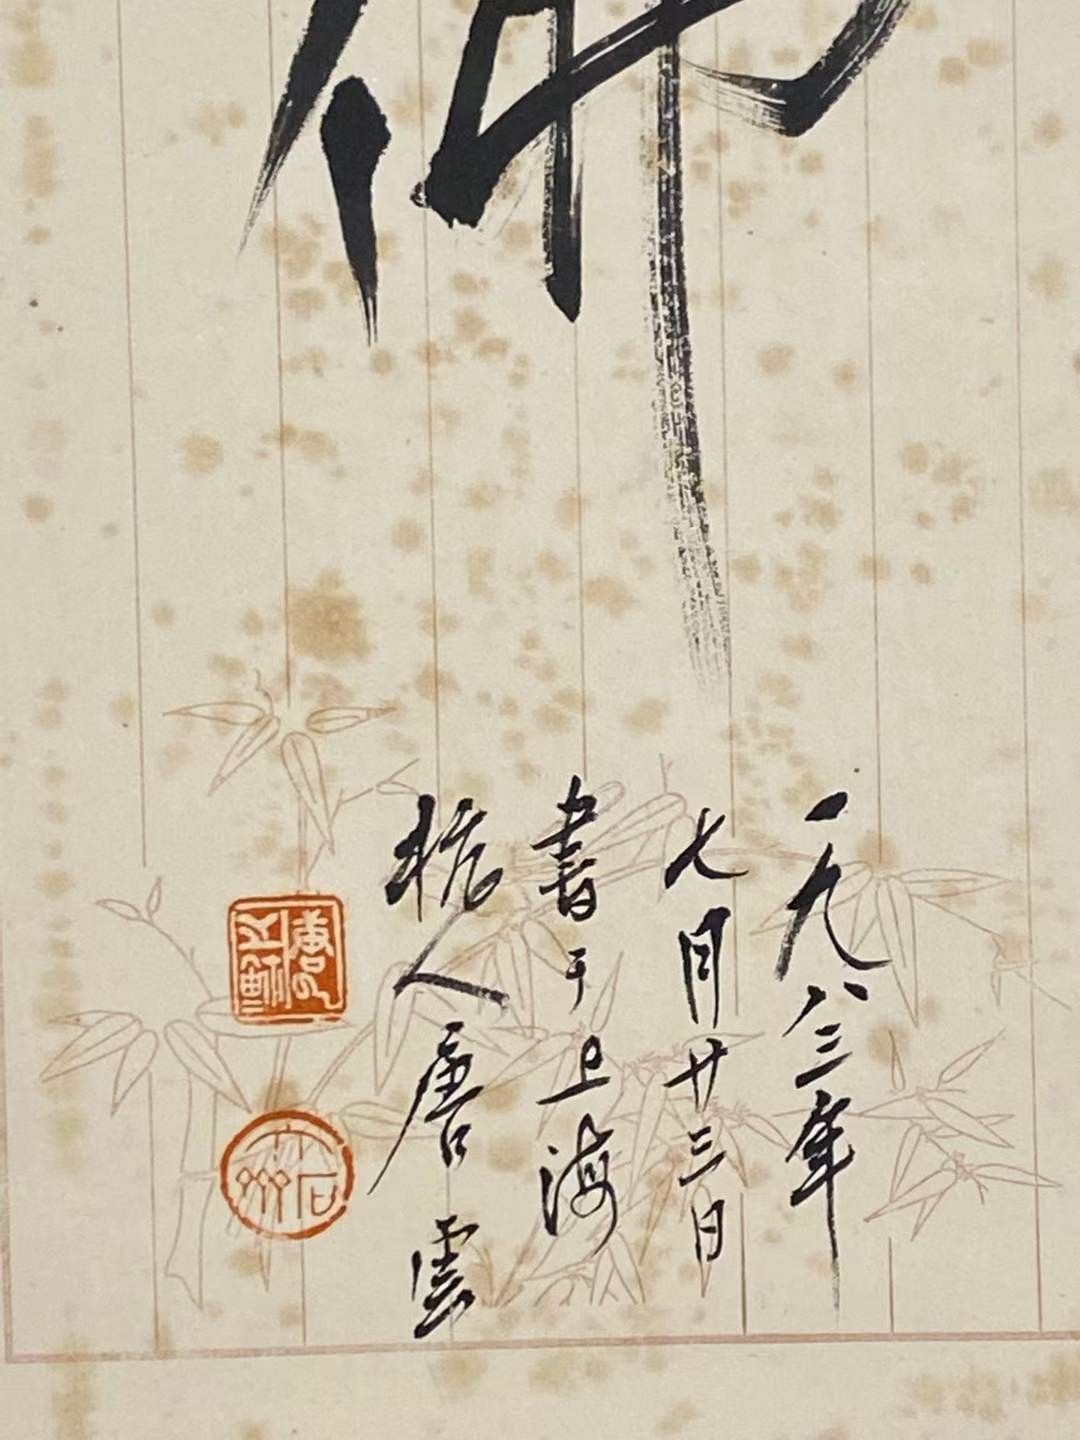 佛
一九八三年
七月廿三日
書于上海
杭人唐雲